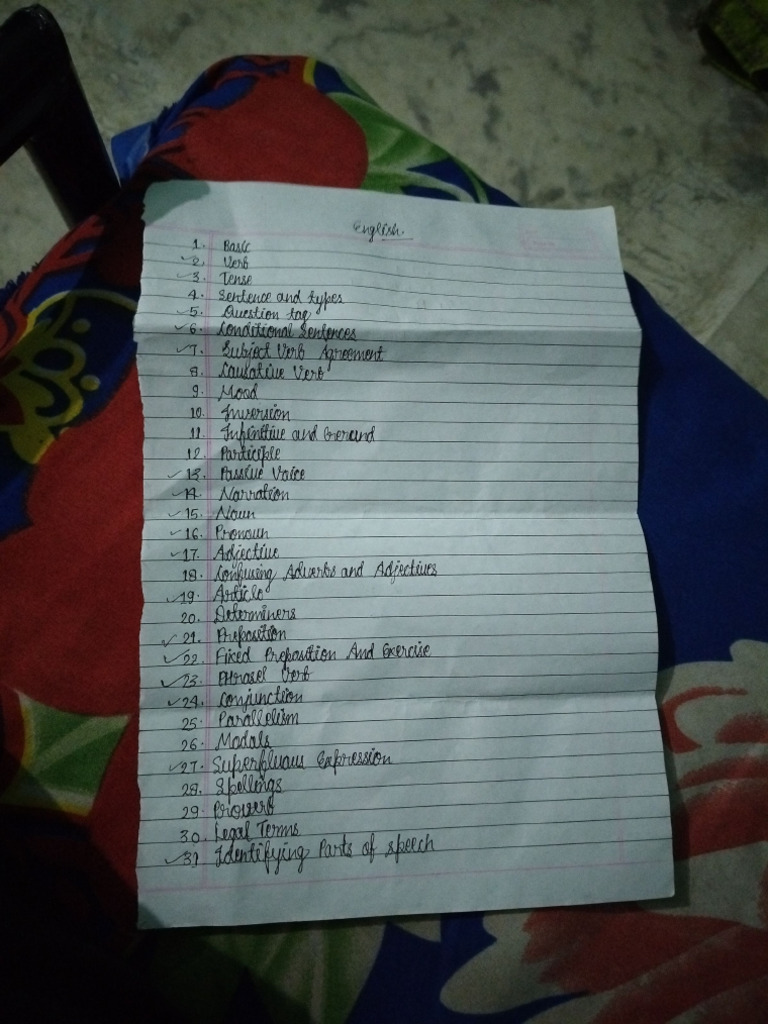 English.
1. Basic
✓2. Verb
✓3. Tense
4. Sentence and types
✓5. Question tag
✓6. Conditional Sentences
✓7. Subject Verb Agreement
8. Causative Verb
9. Mood
10. Inversion
11. Infinitive and Gerund
12. Participle
✓13. Passive Voice
✓14. Narration
✓15. Noun
✓16. Pronoun
✓17. Adjective
18. Confusing Adverbs and Adjectives
✓19. Article
20. Determiners
✓21. Preposition
✓22. Fixed Preposition And Exercise
✓23. Phrasel Verb
✓24. Conjunction
25. Parallelism
26. Modals
✓27. Superfluous Expression
28. Spellings
29. Proverb
30. Legal Terms
✓31 Identifying Parts of speech